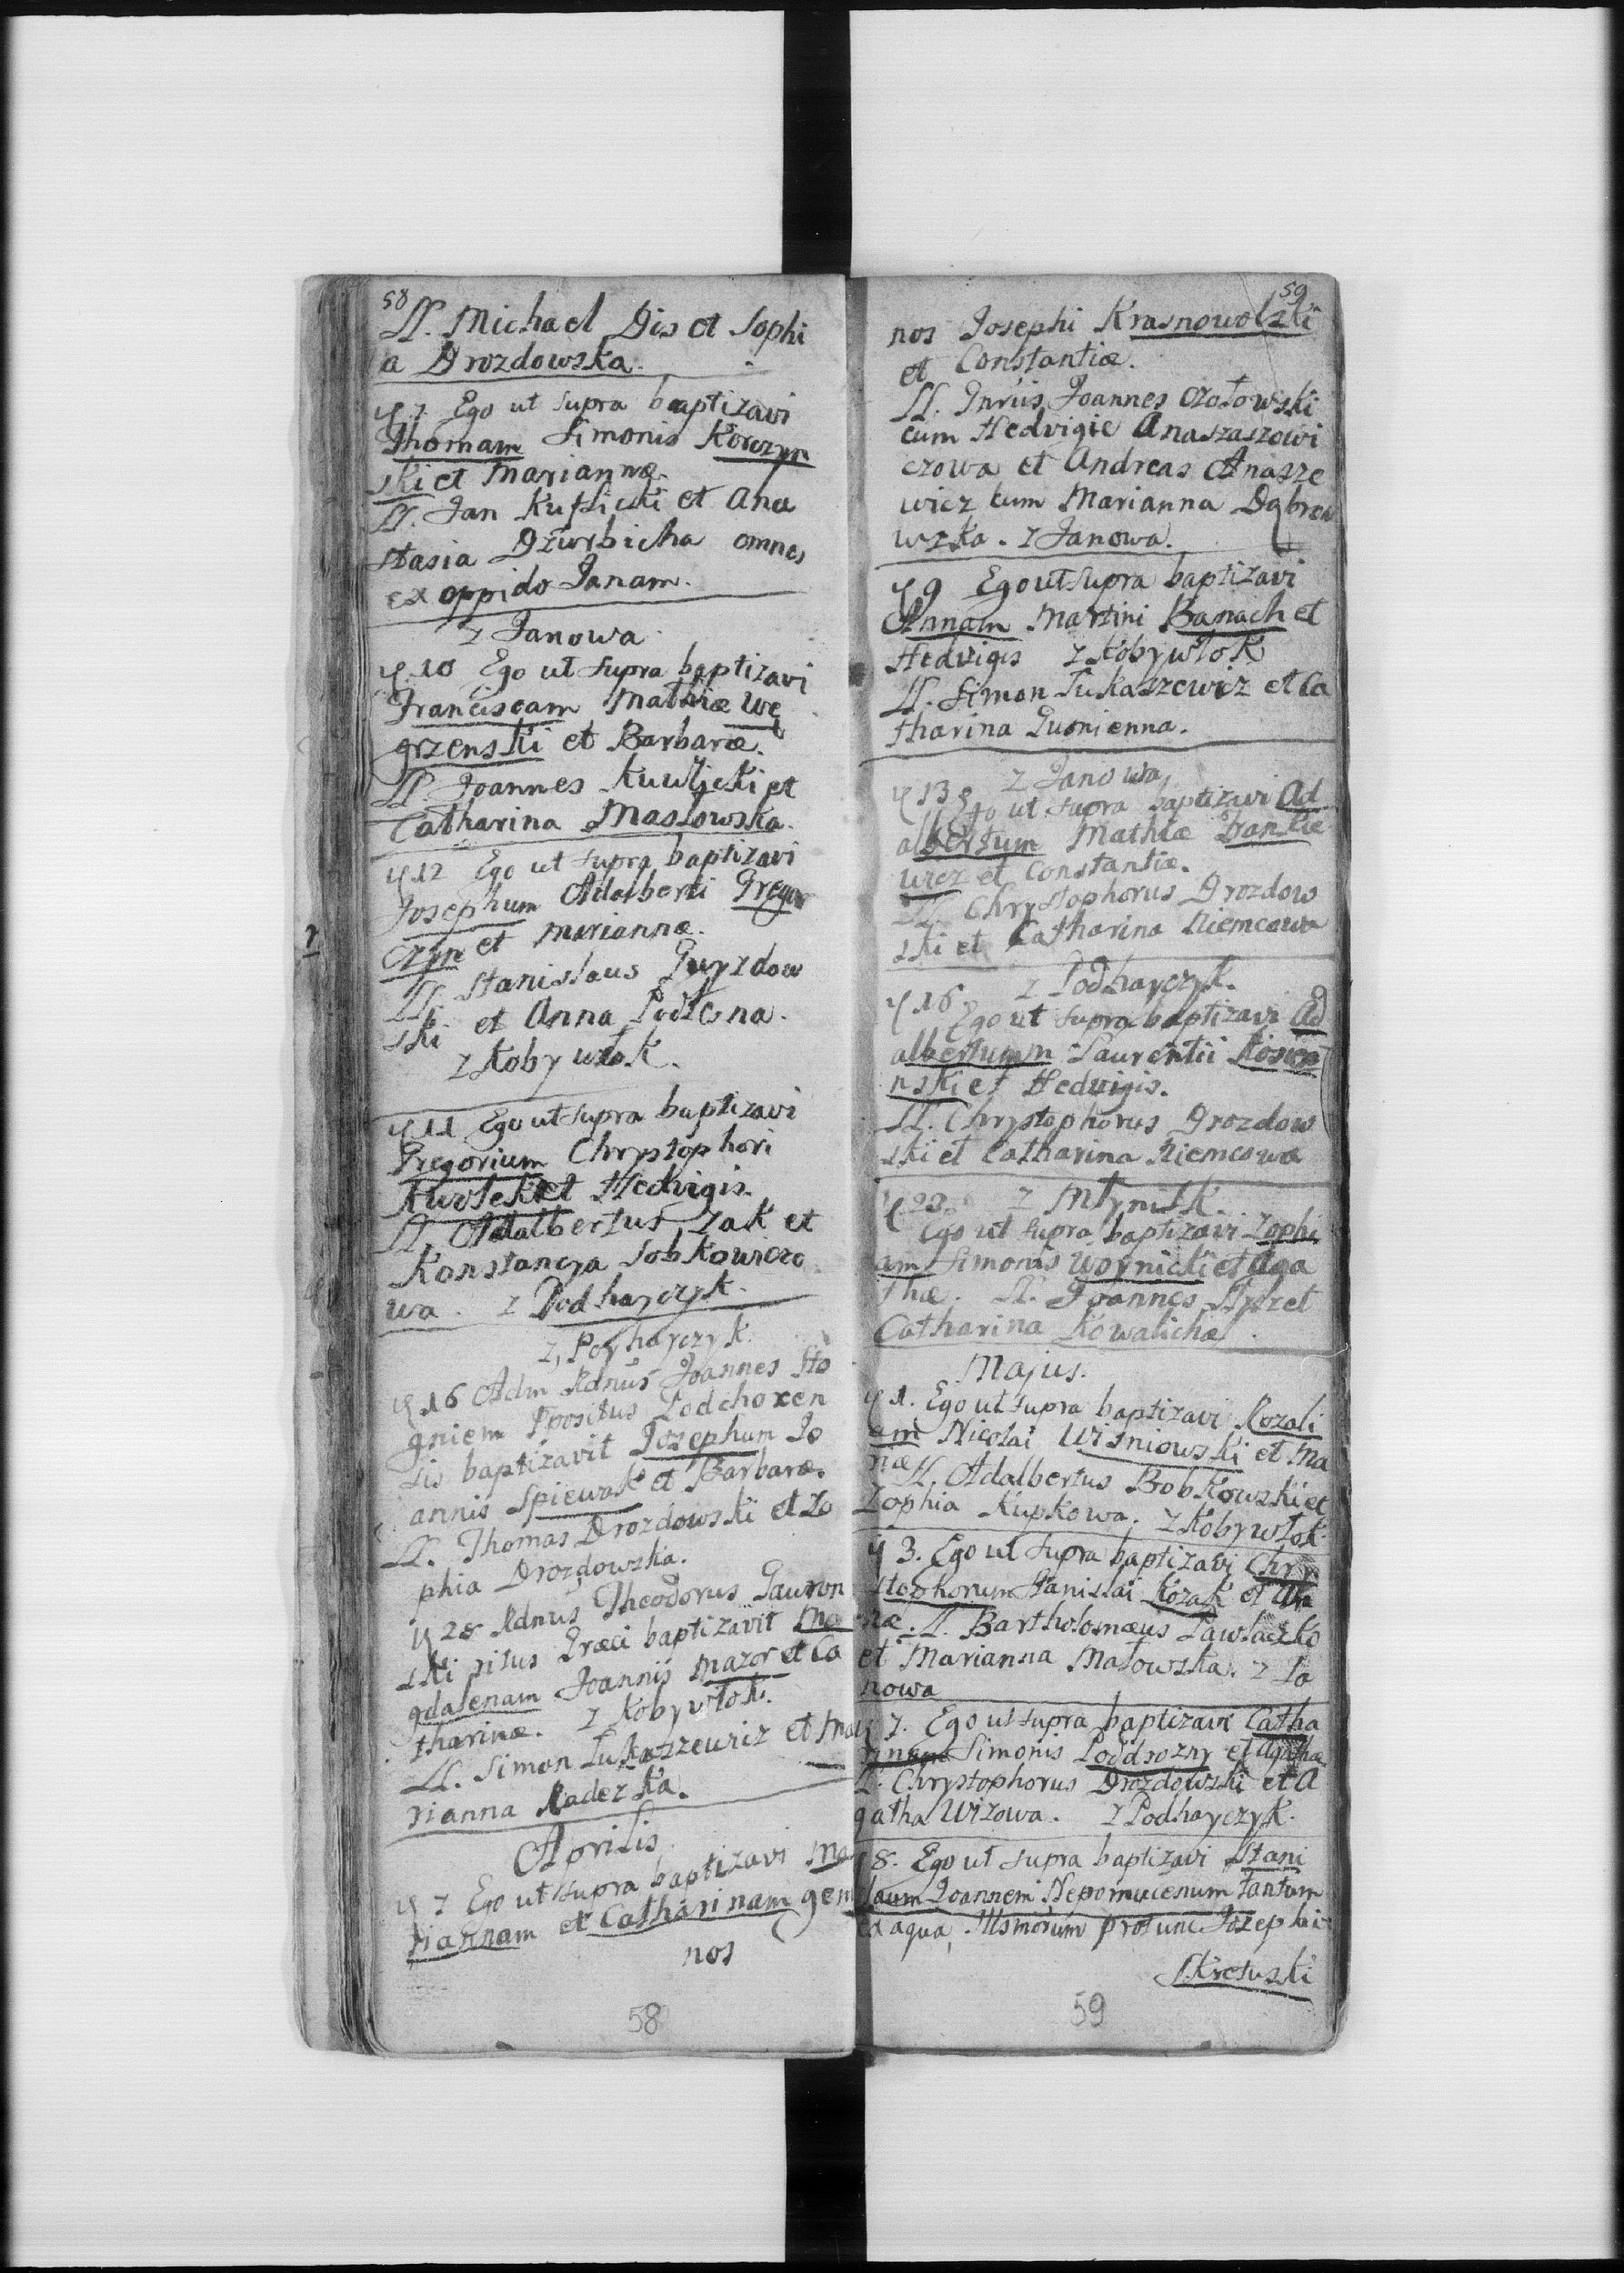 58
LL. Michael Dis et Sophi
a Drozdowska.
7. Ego ut supra baptizavi
Thomam Simonis Korczyn
ski et Mariannæ.
LL. Jan Kuflicki et Ana
stasia Dziurbicha omnes
ex oppido Janam.
z Janowa
10 Ego ut supra baptizavi
Franciscam Mathiæ Wę
grzenski et Barbaræ.
LL. Joannes Kuwlicki et
Catharina Masłowska.
12 Ego ut supra baptizavi
Josephum Adalberti Gregor
czyn et Mariannæ.
LL. Stanislaus Gwyzdow
ski et Anna
z Kobywłok.
11 Ego ut supra baptizavi
Gregorium Chrystophori
Kwolek et Hedvigis.
LL. Adalbertus Zak et
Konstancya Sobkowiczo
wa. z Podhayczyk.
z Poyhayczyk.
16 Adm Rdnus Joannes Sto
gniew Ppositus Podchoren
sis baptizavit Josephum Jo
annis Spiewak et Barbaræ.
LL. Thomas Drozdowski et Zo
phia Drozdowska.
28 Rdnus Theodorus Gawron
ski ritus Græci baptizavit Ma
gdalenam Joannis Mazor et Ca
tharinæ. z Kobywłok.
LL. Simon Łukaszewicz et Ma
rianna Raderka.
Aprilis
7 Ego ut supra baptizavi Ma
riannam et Catharinam gem
nos
58
59
nos Josephi Krasnowolski
et Constantiæ.
LL. Joannes Czołowski
cum Hedvigie Anaszaszowi
czowa et Andreas Anasze
wicz cum Marianna Dąbro
wska. z Janowa.
9 Ego ut supra baptizavi
Annam Martini Banach et
Hedvigis z Kobywłok
LL. Simon Łukaszewicz et Ca
tharina Gumienna.
z Janowa
13 Ego ut supra baptizavi Ad
albertum Mathiæ Iankie
wicz et Constantiæ.
LL. Chrystophorus Drozdow
ski et Catharina Niemcowa
z Podhayczyk.
16 Ego ut supra baptizavi Ad
albertumm Laurentii
nski et Hedvigis.
LL. Chrystophorus Drozdow
ski et Catharina Niemcowa
23. z Młynisk.
Ego ut supra baptizavi Zophi
am Simonis Woynicki et Aga
thæ. LL. Joannes et
Catharina Kowalicha.
Majus.
1. Ego ut supra baptizavi Rozali
am Nicolai Wisniowski et Ma
riæ LL. Adalbertus Bobkowski et
Zophia Kupkowa. z Kobywłok.
3. Ego ut supra baptizavi Chry
stophorum Stanislai Kozak et An
næ. LL. Bartholomæus Pawlaczko
et Marianna Małowska. z Ja
nowa
7. Ego ut supra baptizavi Catha
rinam Simonis Poddrozny et Agatha
LL. Chrystophorus Drozdowski et A
gatha Wizowa. z Podhayczyk.
8. Ego ut supra baptizavi Stani
slaum Joannem Nepomucenum tantum
ex aqua, Illsmorum protunc Jozephi
Skretuski
59